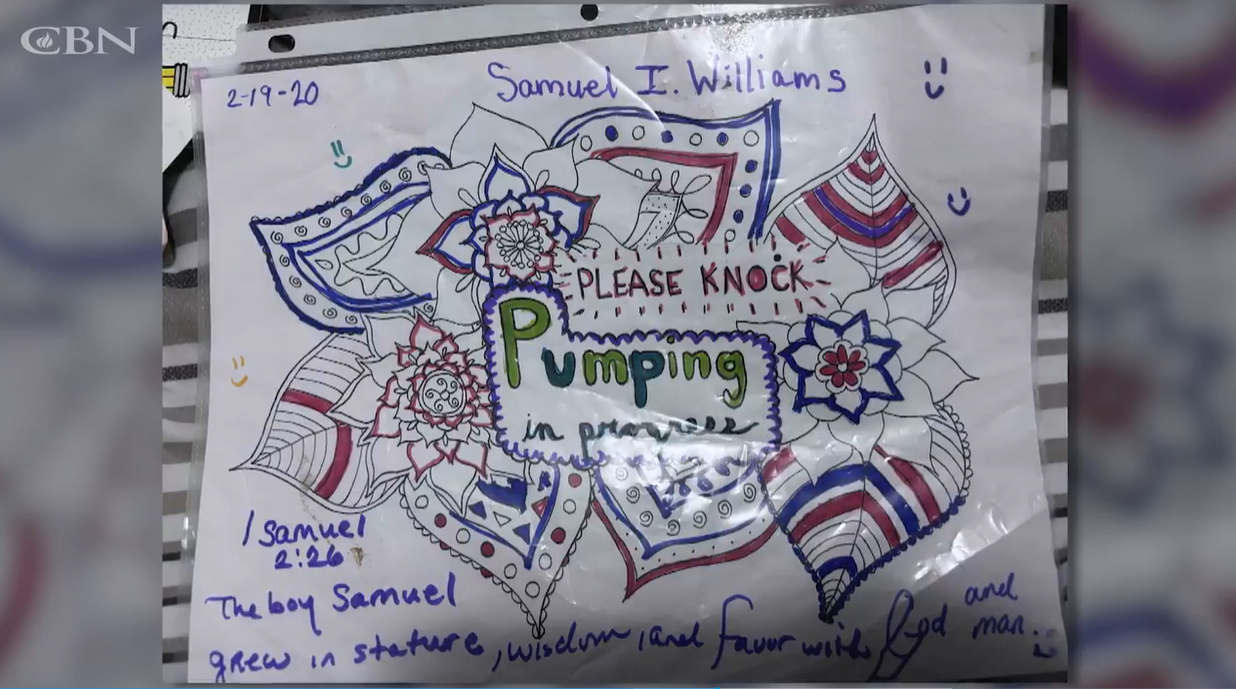 CBN
Samuel I. Williams
2-19-20
PLEASE KNOCK
Pumping
in progress
1 Samuel
2:26
The boy Samuel
grew in stature, wisdom, and favor with God and man.